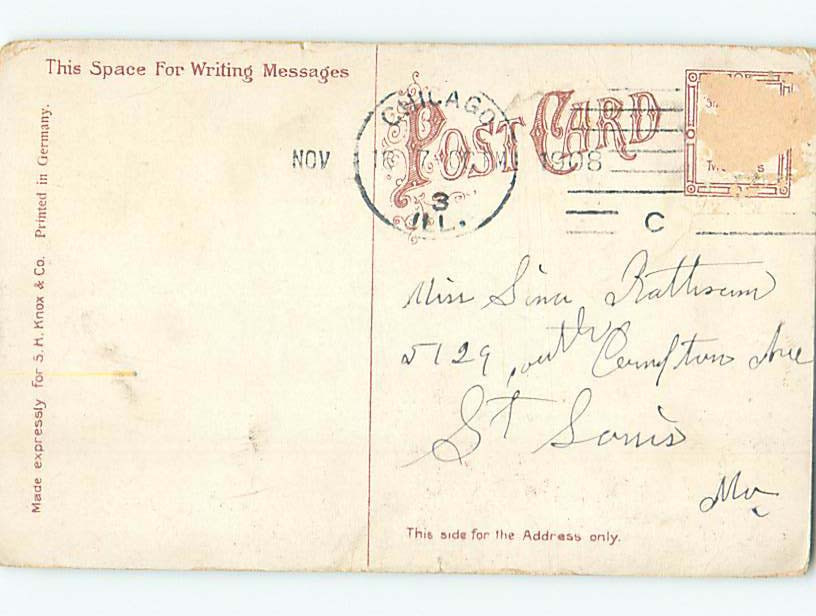 This Space For Writing Messages
Made expressly for S. H. Knox & Co. Printed in Germany.
POST CARD
CHICAGO
NOV 7 1908
3
ILL.
C
Miss
5129 South Compton Ave
St Louis
Mo
This side for the Address only.